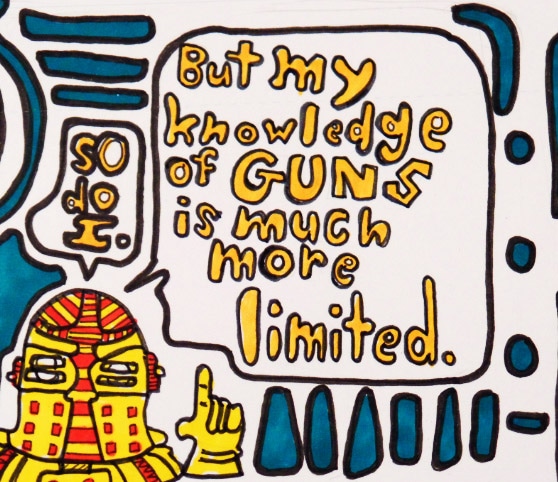 so
do
I.
But my
knowledge
of GUNS
is much
more
limited.